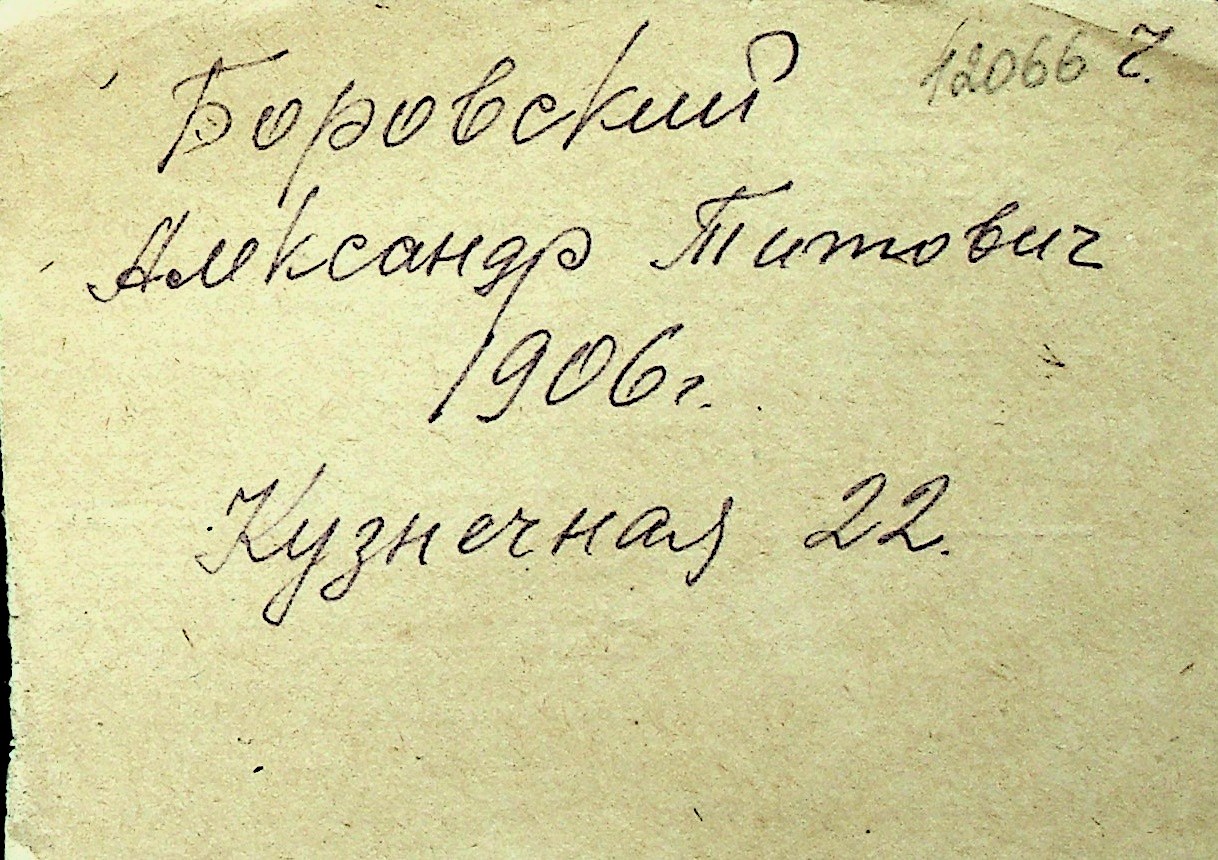 12066 ч.
Боровский
Александр Титович
1906г.
Кузнечная 22.